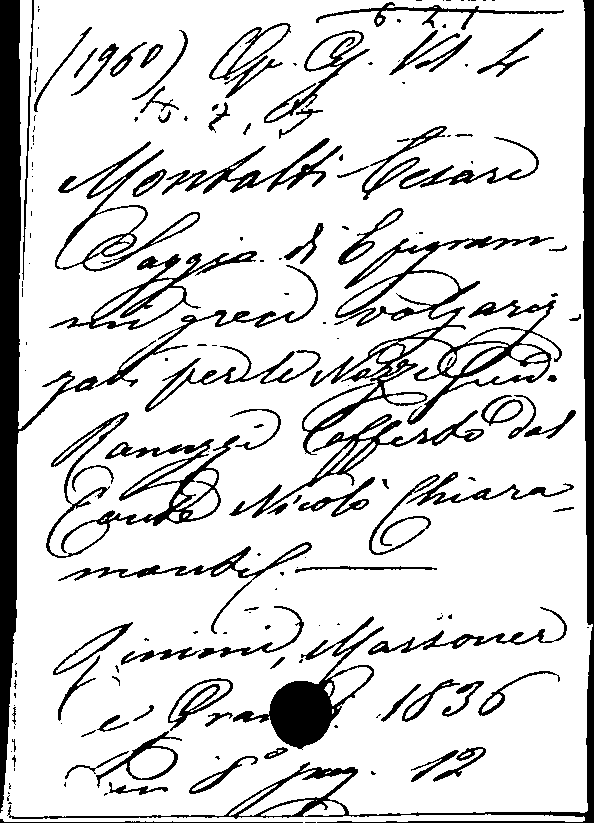 6. 2. 1
(1960) Op. G. Vol. 4
N. 7,
Montalti Cesare
Saggio di Epigram-
mi greci volgariz-
zati per le Nozze Guid.
Ranuzzi Offerto dal
Conte Nicolò Chiara-
monti.
Rimini, Marsoner
e Grandi. 1836
in 8º pag. 12